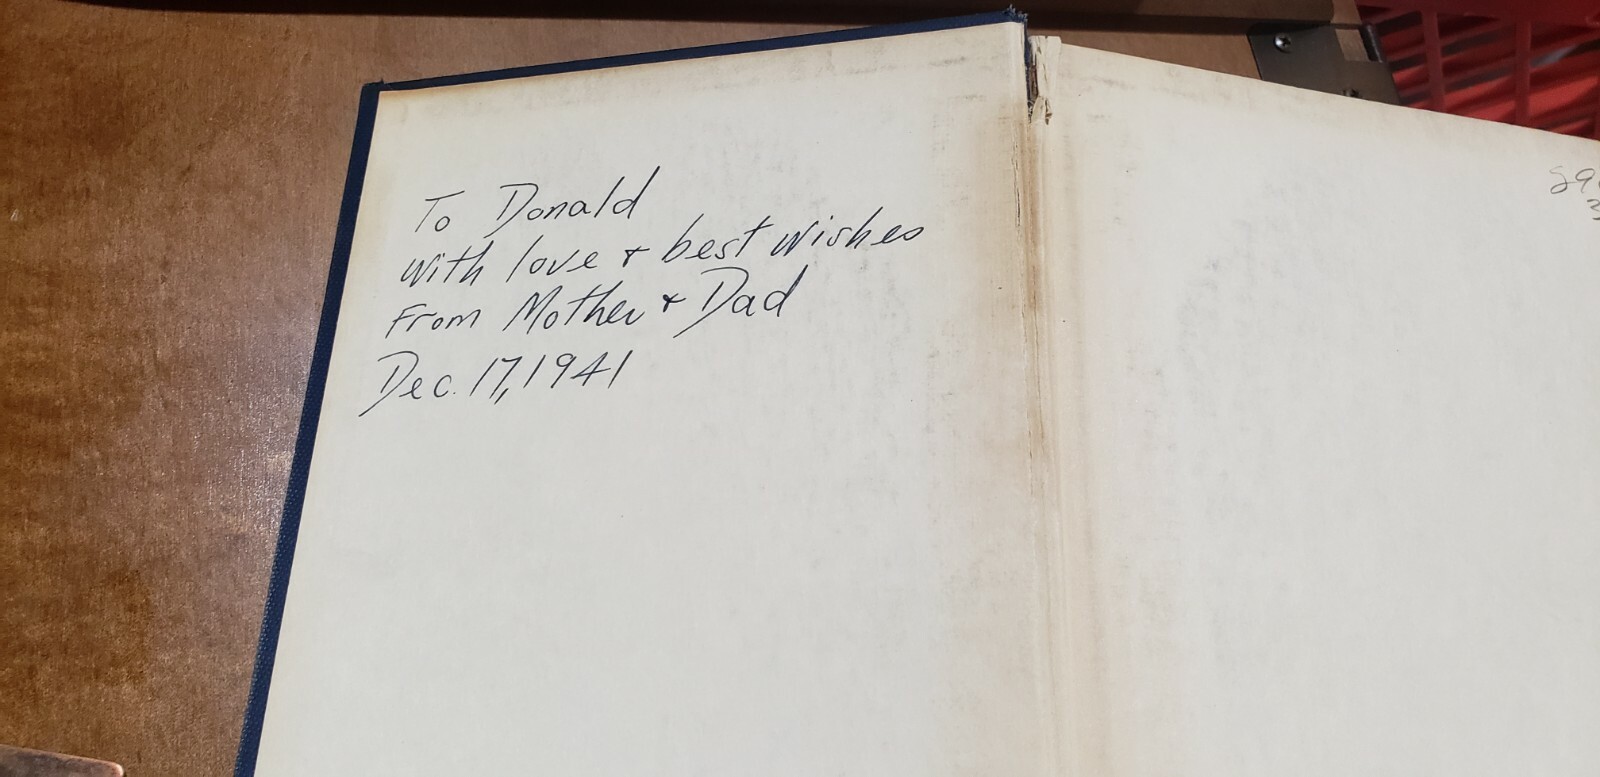 To Donald
with love + best wishes
From Mother + Dad
Dec. 17, 1941